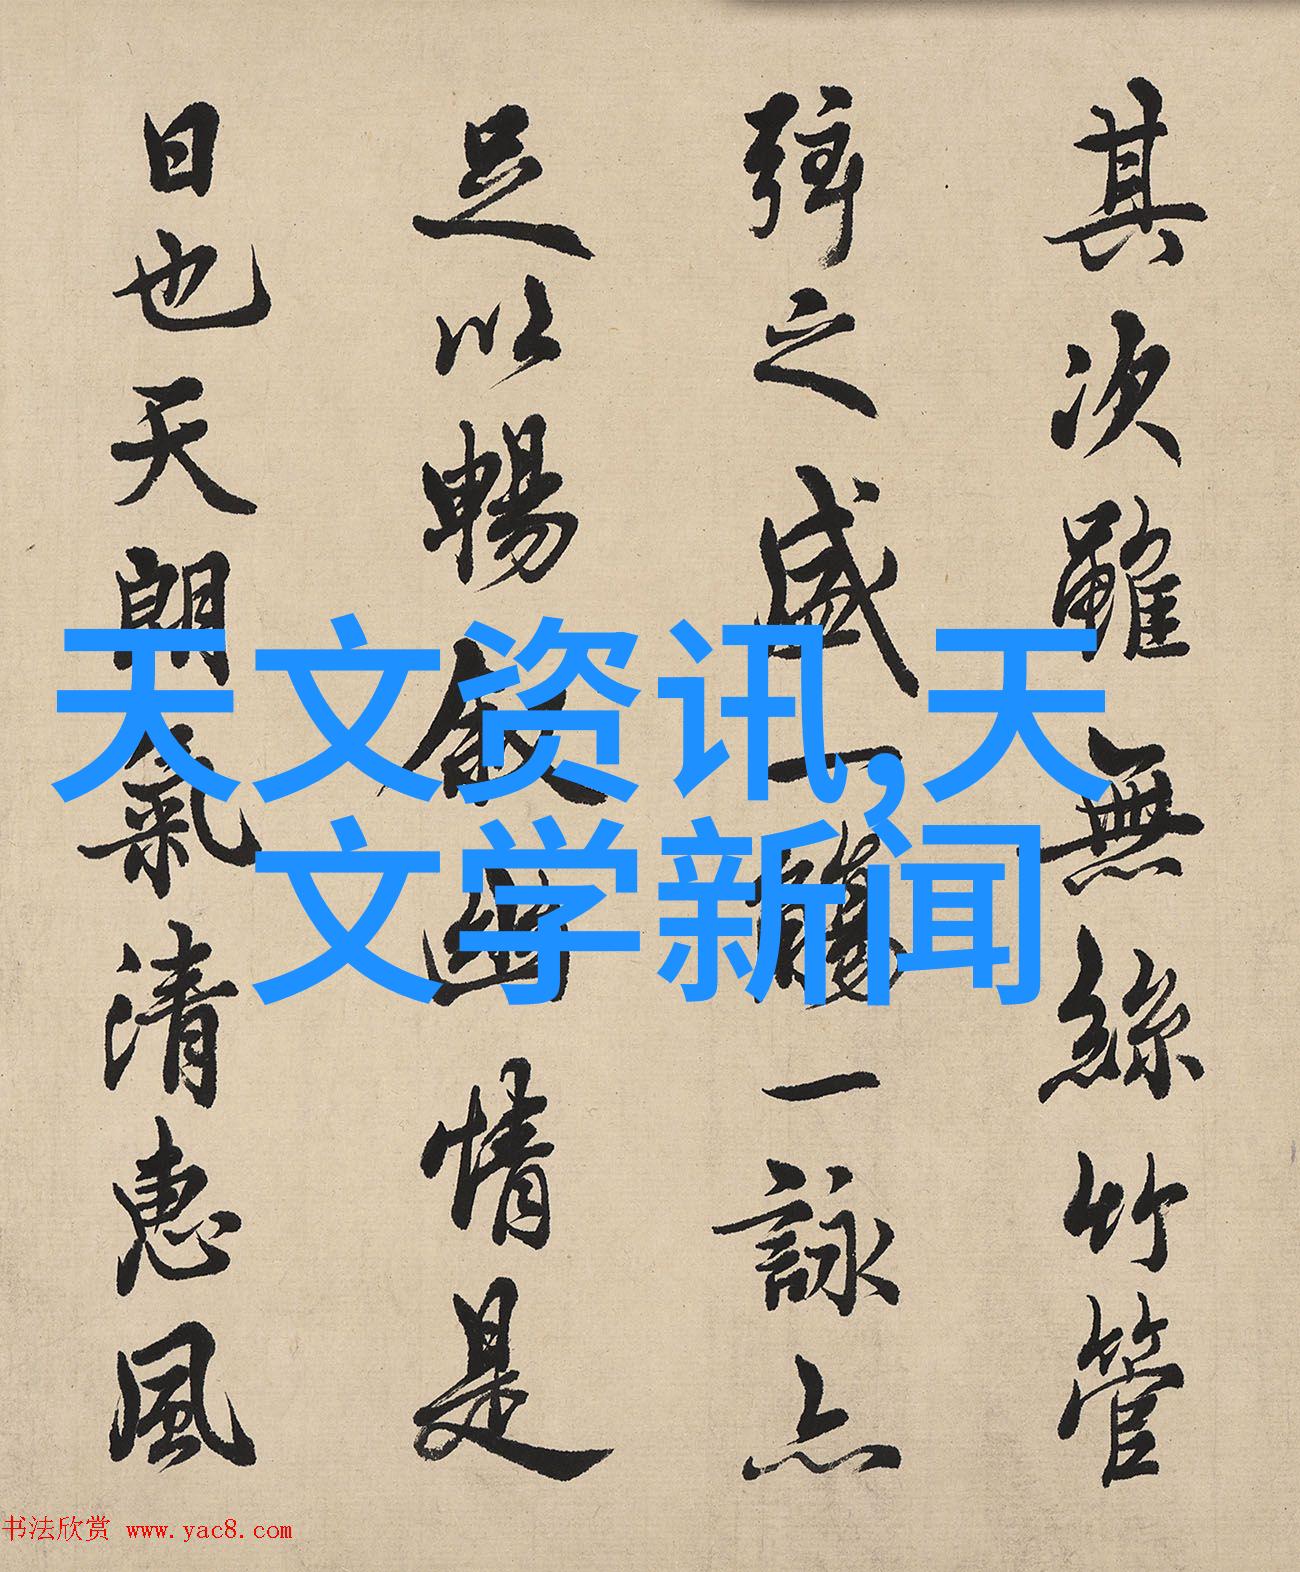 其次雖無絲竹管
弦之盛一觴一詠亦
足以暢敘幽情是
日也天朗氣清惠風
天文资讯,天
文学新闻
书法欣赏 www.yac8.com